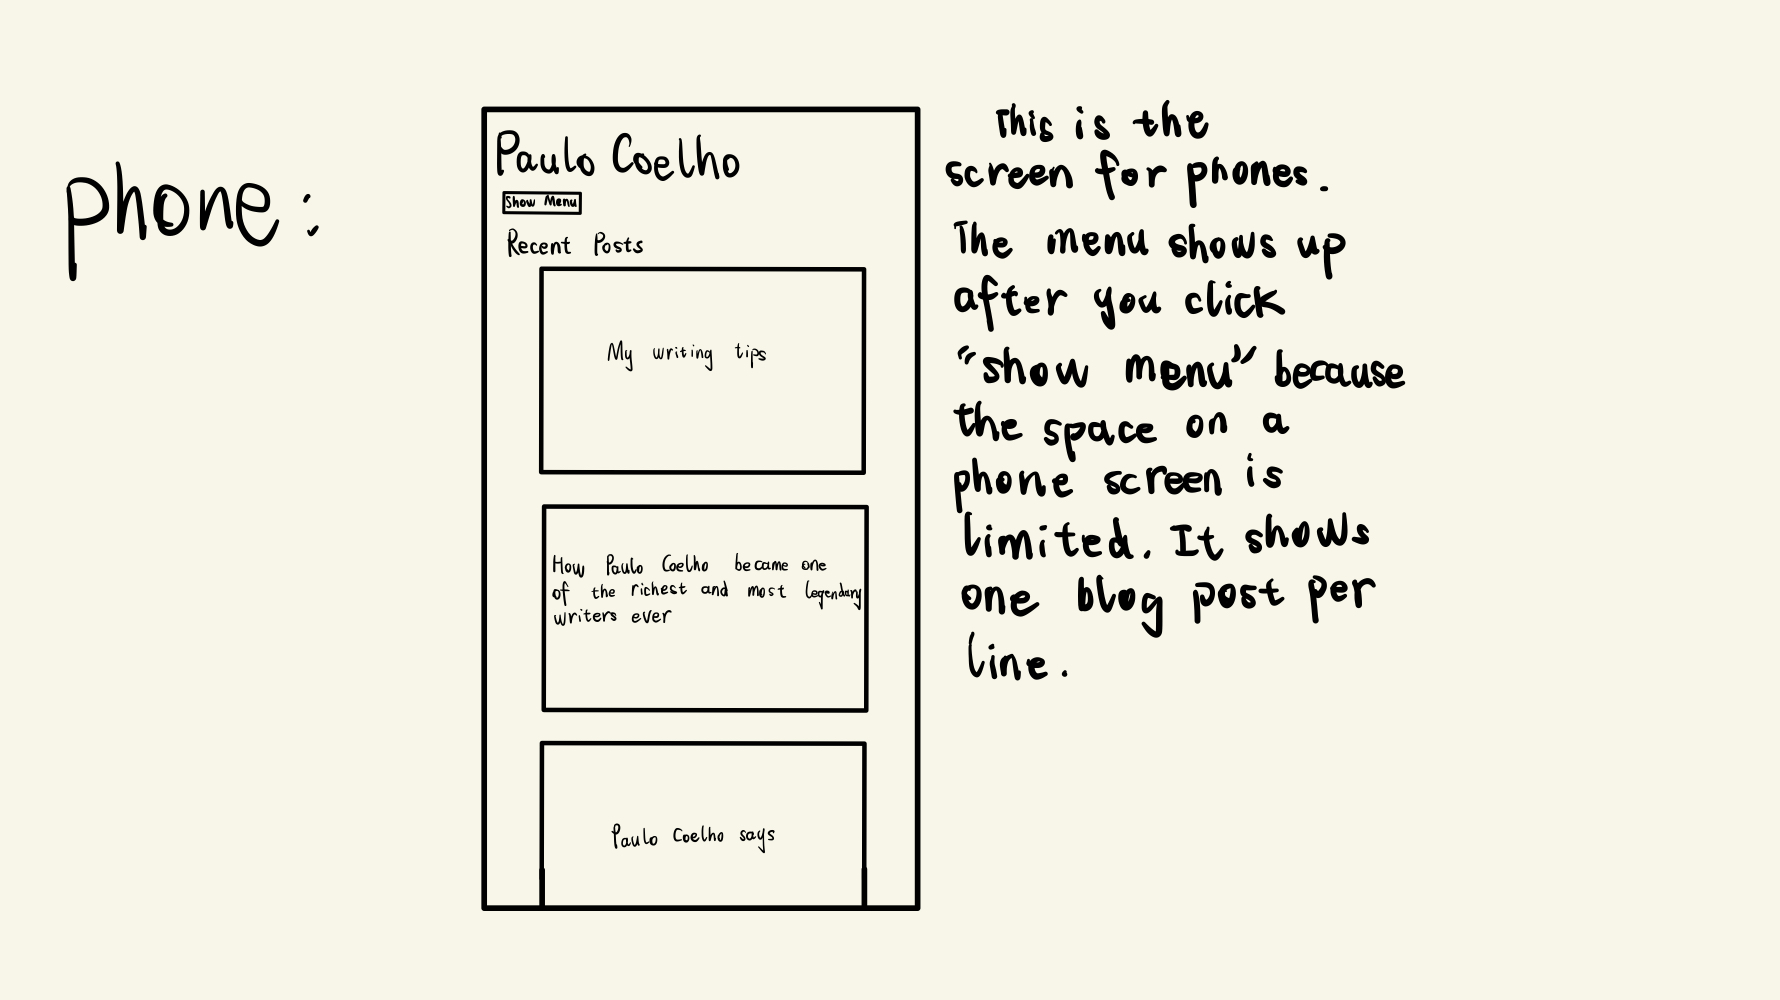 phone:
Paulo Coelho
Show Menu
Recent Posts
My writing tips
How Paulo Coelho became one
of the richest and most legendary
writers ever
Paulo Coelho says
This is the
screen for phones.
The menu shows up
after you click
"show menu" because
the space on a
phone screen is
limited. It shows
one blog post per
line.